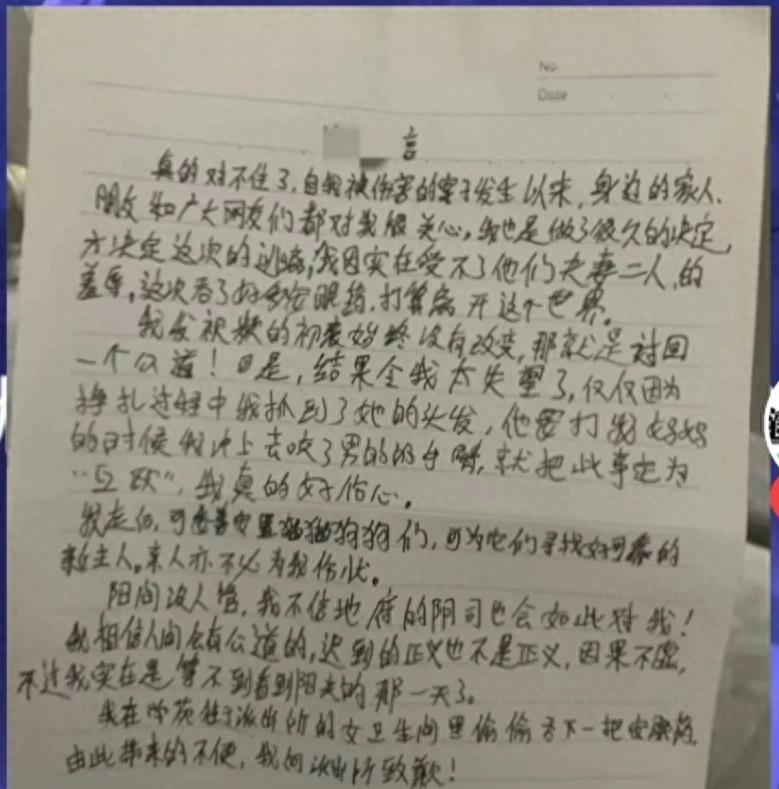 No
Date
言
真的对不住了,自我被伤害的案子发生以来,身边的家人、
朋友和广大网友们都对我很关心,我也是做了很久的决定,
才决定这次的逃避,我因实在受不了他们夫妻二人的
羞辱,这次吞了好多安眠药,打算离开这个世界。
我发视频的初衷始终没有改变,那就是讨回
一个公道!可是,结果令我太失望了,仅仅因为
挣扎过程中我抓到了她的头发,他要打我妈妈
的时候我冲上去咬了男的的手臂,就把此事定为
“互殴”,我真的好伤心。
我走后,可善安置猫猫狗狗们,可为它们寻找好可靠的
新主人。亲人亦不必为我伤状。
阳间没人管,我不信地府的阴司也会如此对我!
我相信人间会有公道的,迟到的正义也不是正义,因果不虚,
不过我实在是等不到看到阳光的那一天了。
我在学苑 派出所的女卫生间里偷偷吞下一把安眠药,
由此带来的不便,我向派出所致歉!